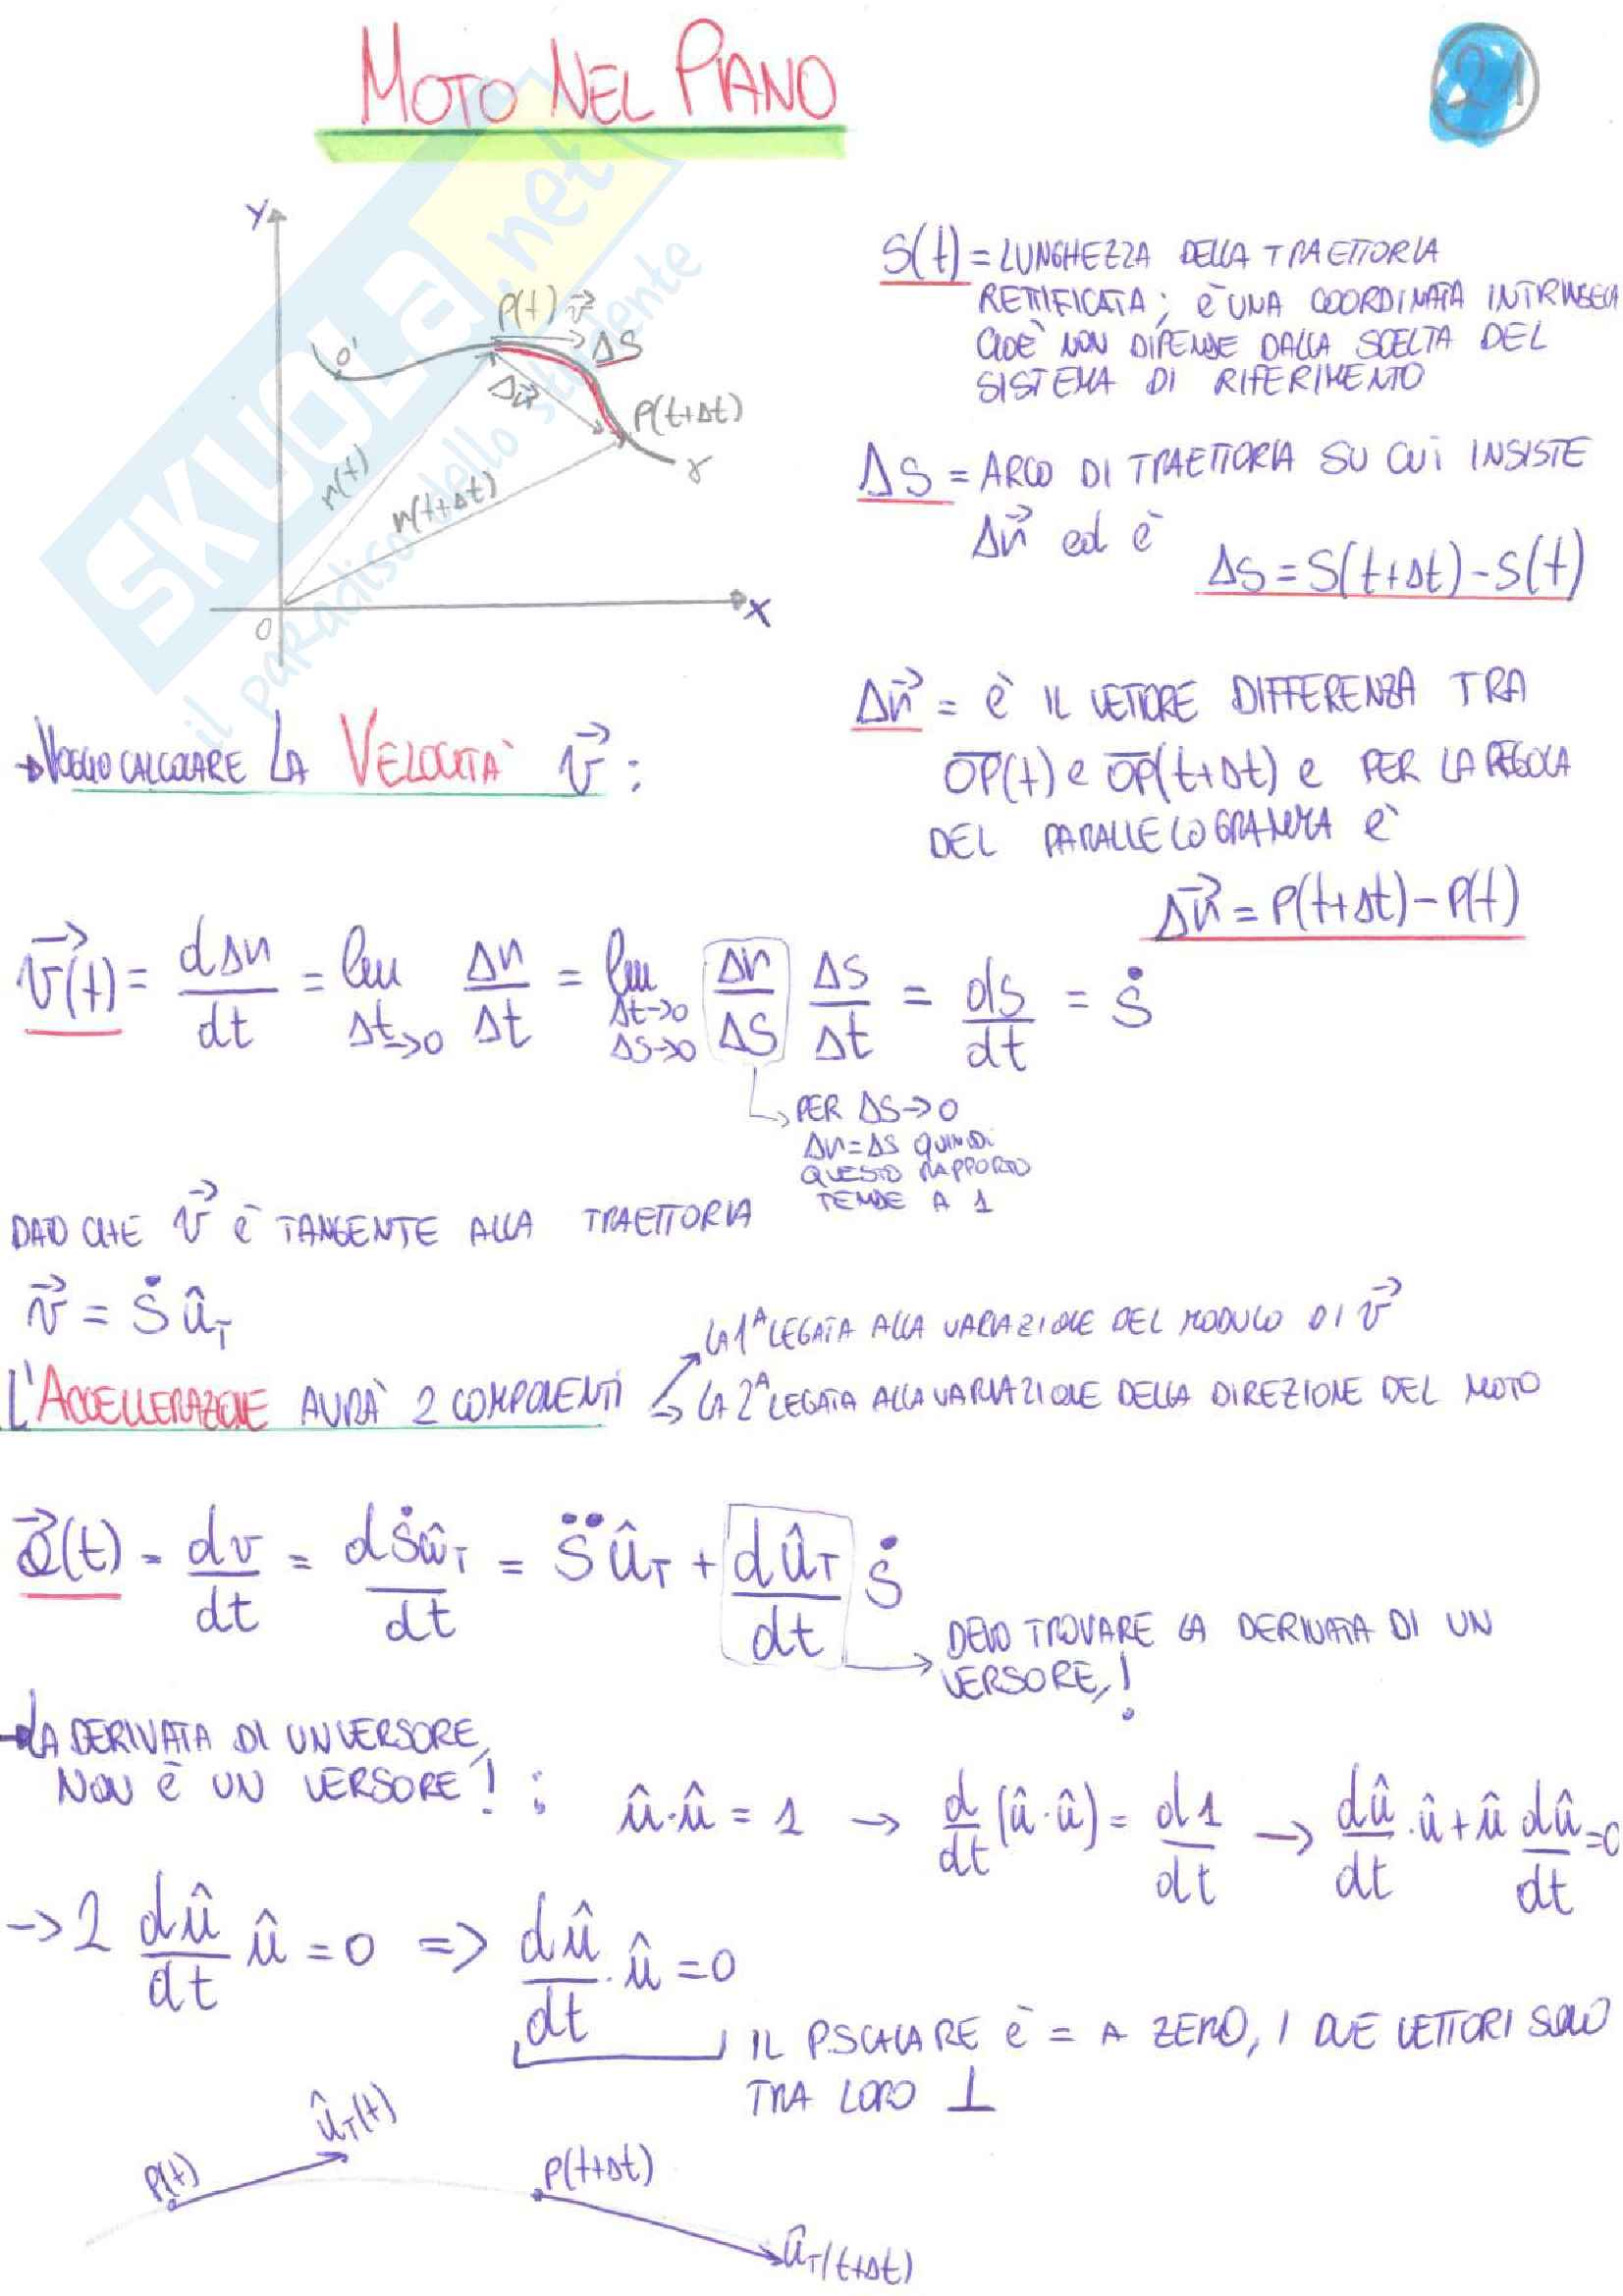 MOTO NEL PIANO
21
SKUOLA.net
il paradiso dello studente
Y
P(t) v⃗
ΔS
O'
Δr⃗
P(t+Δt)
γ
r(t)
r(t+Δt)
O
X
S(t) = LUNGHEZZA DELLA TRAETTORIA
RETTIFICATA; È UNA COORDINATA INTRINSECA
CIOÈ NON DIPENDE DALLA SCELTA DEL
SISTEMA DI RIFERIMENTO
ΔS = ARCO DI TRAETTORIA SU CUI INSISTE
Δr⃗ ed è
ΔS = S(t+Δt) - S(t)
Δr⃗ = è IL VETTORE DIFFERENZA TRA
OP(t) e OP(t+Δt) e PER LA REGOLA
DEL PARALLELOGRAMMA è
Δr⃗ = P(t+Δt) - P(t)
→ VOGLIO CALCOLARE LA VELOCITÀ v⃗ :
v⃗(t) = dΔr/dt = lim Δt→0 Δr/Δt = lim Δt→0 ΔS→0 Δr/ΔS ΔS/Δt = ds/dt = Ṡ
↳ PER ΔS→0
Δr=ΔS QUINDI
QUESTO RAPPORTO
TENDE A 1
DATO CHE v⃗ È TANGENTE ALLA TRAETTORIA
v⃗ = Ṡ û_T
L'ACCELLERAZIONE AVRÀ 2 COMPONENTI
LA 1ª LEGATA ALLA VARIAZIONE DEL MODULO DI v⃗
→ LA 2ª LEGATA ALLA VARIAZIONE DELLA DIREZIONE DEL MOTO
a⃗(t) = dv/dt = dṠû_T/dt = S̈ û_T + dû_T/dt Ṡ
→ DEVO TROVARE LA DERIVATA DI UN
VERSORE!
→ LA DERIVATA DI UN VERSORE
NON È UN VERSORE! :
û·û = 1 → d/dt (û·û) = d1/dt → dû/dt · û + û dû/dt = 0
→ 2 dû/dt û = 0 => dû/dt · û = 0
IL P.SCALARE È = A ZERO, I DUE VETTORI SONO
TRA LORO ⊥
P(t)
û_T(t)
P(t+Δt)
û_T(t+Δt)